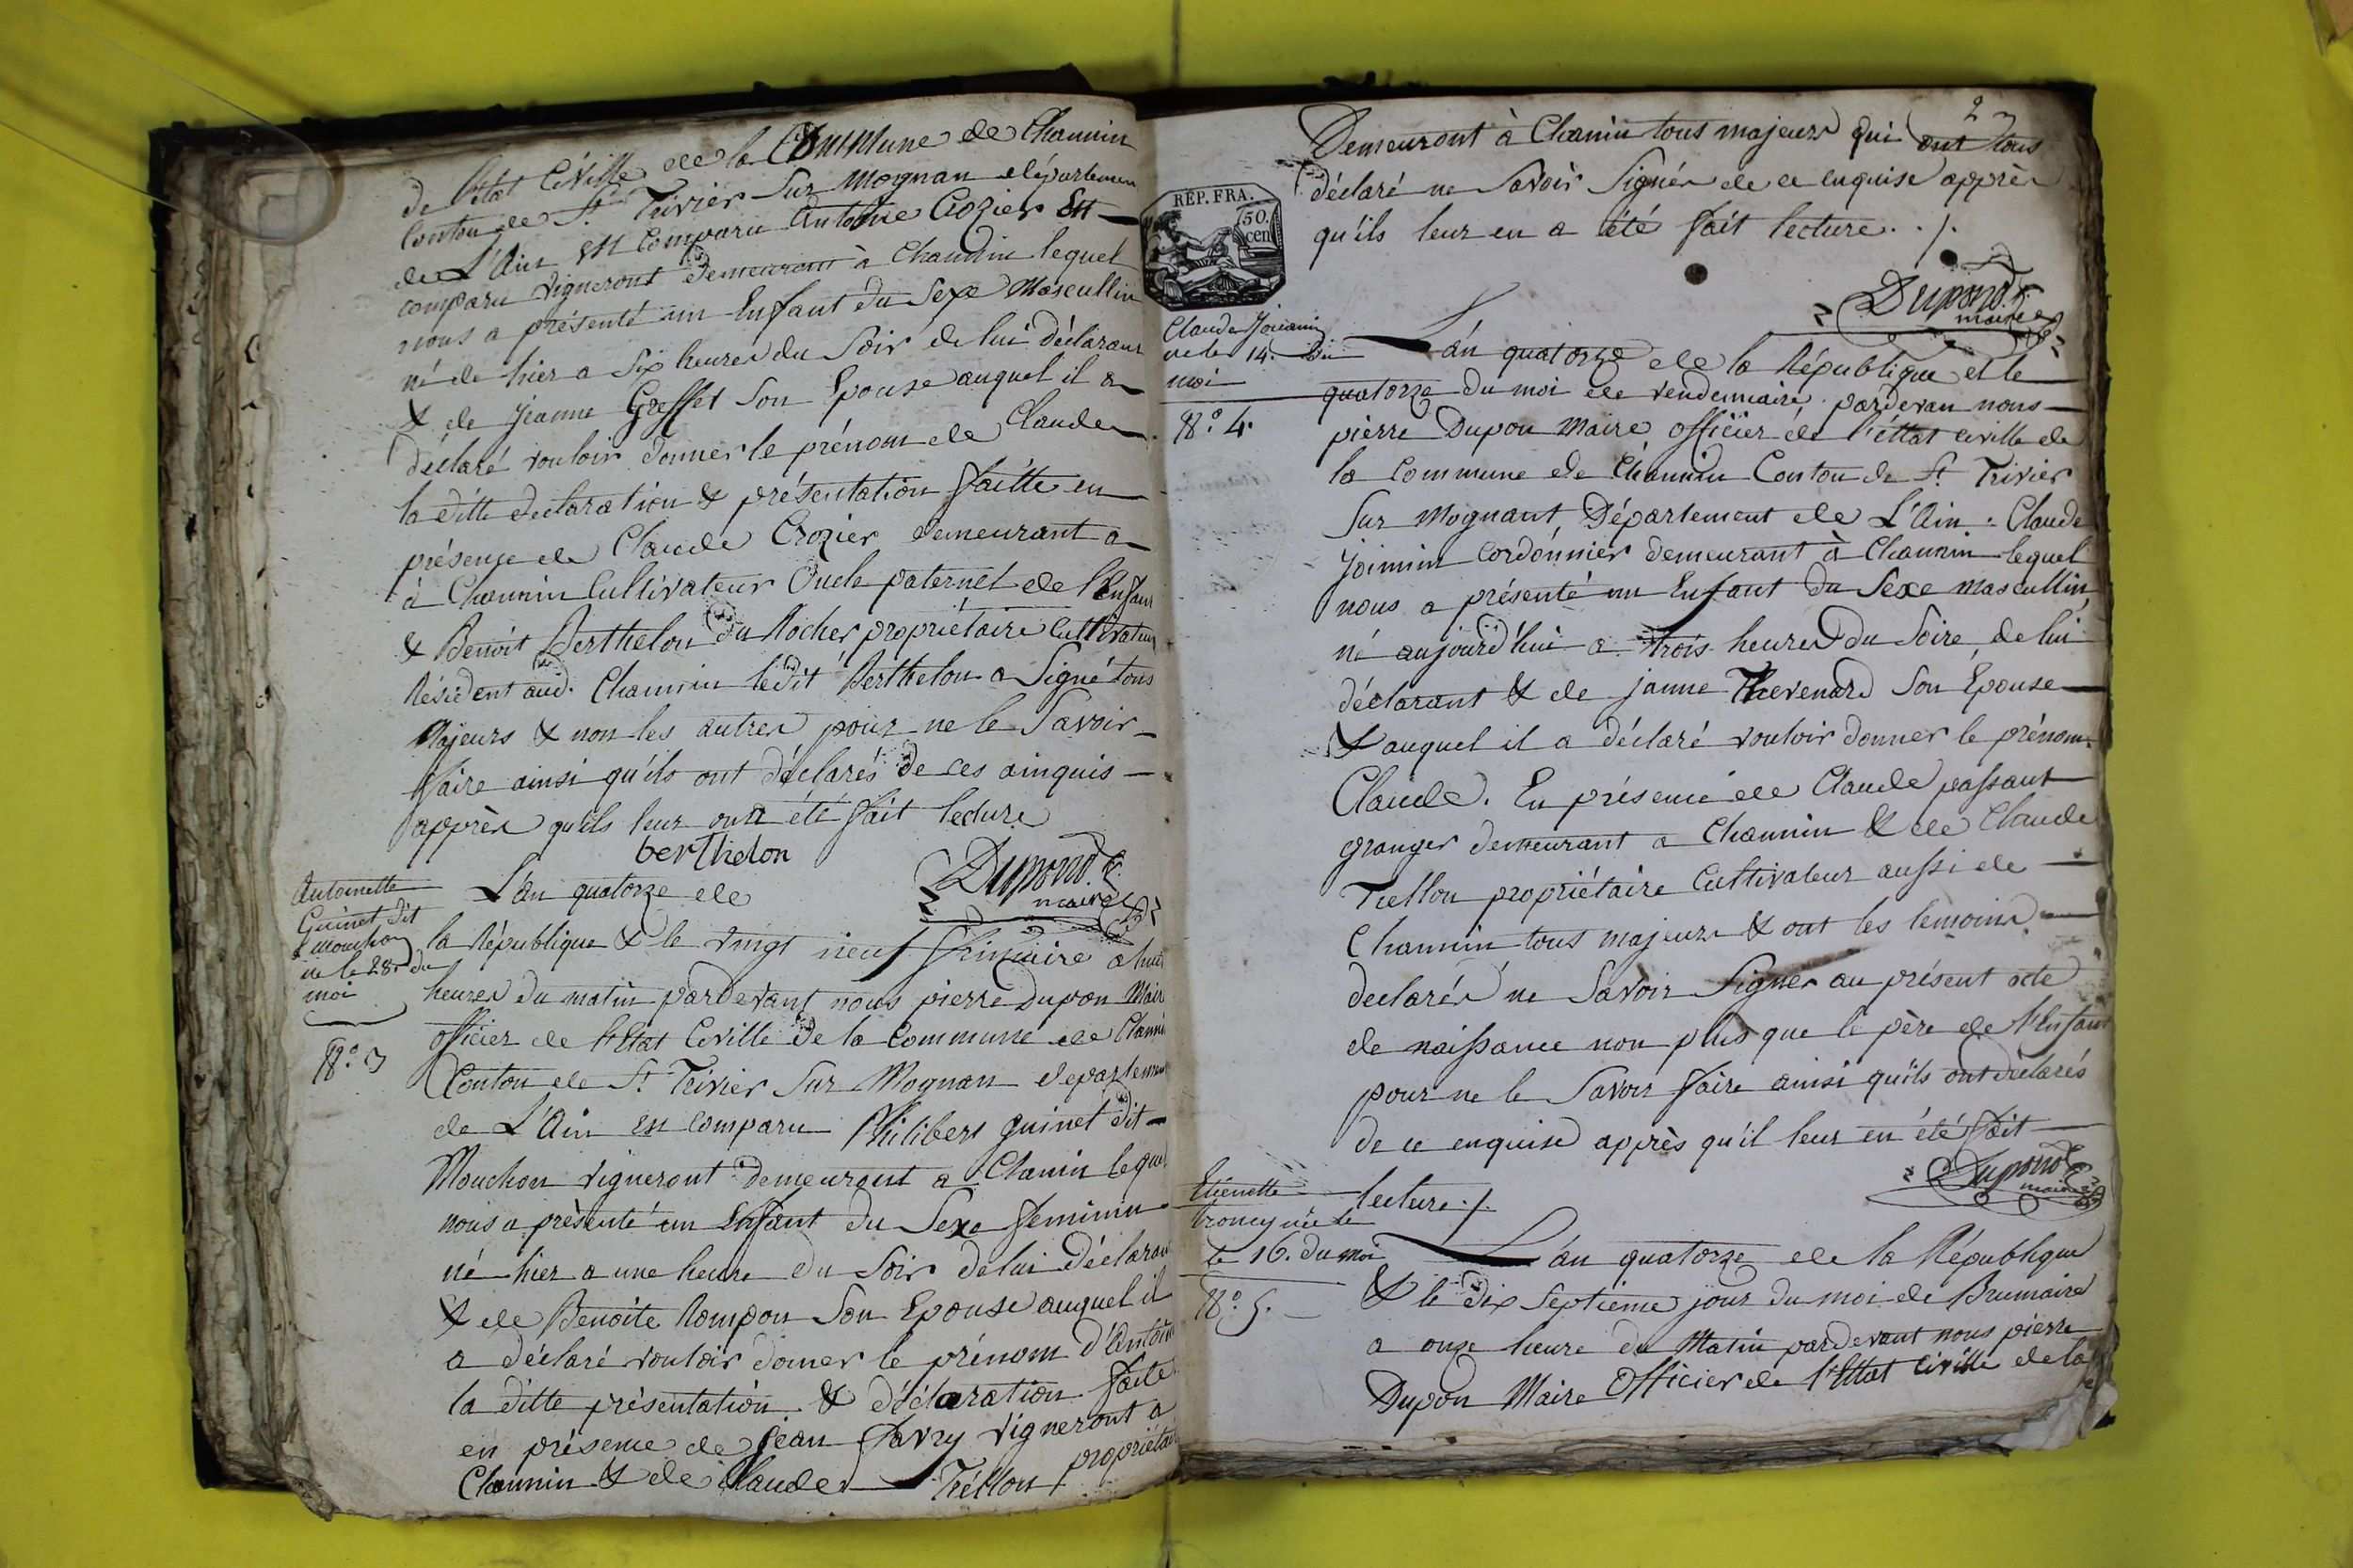 de l'état Civille de la Commune de Channin
Conton de St Trivier Sur Mognan département
de L'Ain est Comparu Antoine Crozier Est
comparu vigneront demeurant à Channin lequel
nous a présenté un Enfant du Sexe Mascullin
né de hier a Six heures du Soir de lui déclarant
& de jeanne Greffet Son Epouse auquel il a
déclaré vouloir donner le prénom de Claude
la ditte declaration & présentation faitte en
présence de Claude Crozier demeurant a
à Channin Cultivateur Oncle paternel de l'Enfant
& Benoit Berthelon du Rocher propriétaire Cultivateur
Résident aud. Channin ledit Berthelon a Signé tous
Majeurs & non les autres pour ne le Savoir
faire ainsi qu'ils ont déclarés de ces ainquis
apprès qu'ils leur ont été fait lecture
berthelon
Dupond
maire
Antoinette
Guinet dit
Mouchon
né le 28. du
moi
No. 3
L'an quatorze de
la République & le vingt neuf frimaire a huit
heures du matin pardevant nous pierre Dupon Maire
officier de l'Etat Civille de la Commune de Channin
Conton de St Trivier Sur Mognan departement
de L'Ain est comparu Philibert guinet dit
Mouchon vigneront demeurant a Chanin lequel
nous a présenté un Enfant du Sexe feminin
né hier a une heure du Soir de lui Déclarant
& de Benoite Rompon Son Epouse auquel il
a déclaré vouloir donner le prénom d'Antoine
la ditte présentation & déclaration faite
en présence de Jean Savry vigneront a
Channin & de Claude Trellon propriétaire
2
Demeuront à Chanin tous majeurs qui ont tous
déclaré ne Savoir Signér de ce enquise apprès
qu'ils leur en a été fait lecture ./.
REP. FRA.
50.
cen
Dupond
maire
Claude Joiminin
né le 14. du
moi
No. 4.
L'án quatorze de la République et le
quatorze du moi de vendemiaire pardevan nous
pierre Dupon Maire officier de l'éttat civille de
la commune de Channin Conton de St Trivier
Sur Mognant, Département de L'Ain Claude
joiminin cordonnier demeurant à Channin lequel
nous a présenté un Enfant du Sexe mascullin,
né aujourd'hui a trois heures du Soire, de lui
déclarant & de janne Thevenard Son Epouse
& auquel il a déclaré vouloir donner le prénom
Claude. En présence de Claude passant
granger demeurant a Channin & de Claude
Trellon propriétaire Cultivateur aussi de
Channin tous majeurs & ont les temoins
declarés ne Savoir Signer au présent acte
de naissance non plus que le père de l'Enfant
pour ne le Savoir faire ainsi quils ont déclarés
de ce enquise apprès qu'il leur en été fait
lecture ./.
Dupond
maire
Etienette
troncy née le
le 16. du moi
No. 5.
L'an quatorze de la République
& le dix Septieme jour du moi de Brumaire
a onze heure du Matin pardevant nous pierre
Dupon Maire Officier de l'Ettat Civille de la